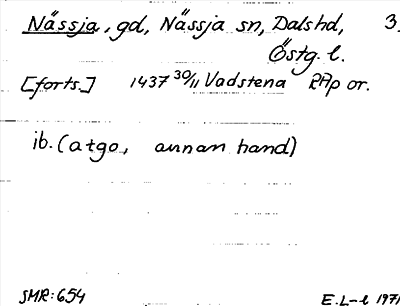 Nässja, gd, Nässja sn, Dals hd, 3.
Östg. l.
[forts.] 1437 30/11 Vadstena RAp or.
ib. (atgo, annan hand)
SMR:654 E.L-l 1971